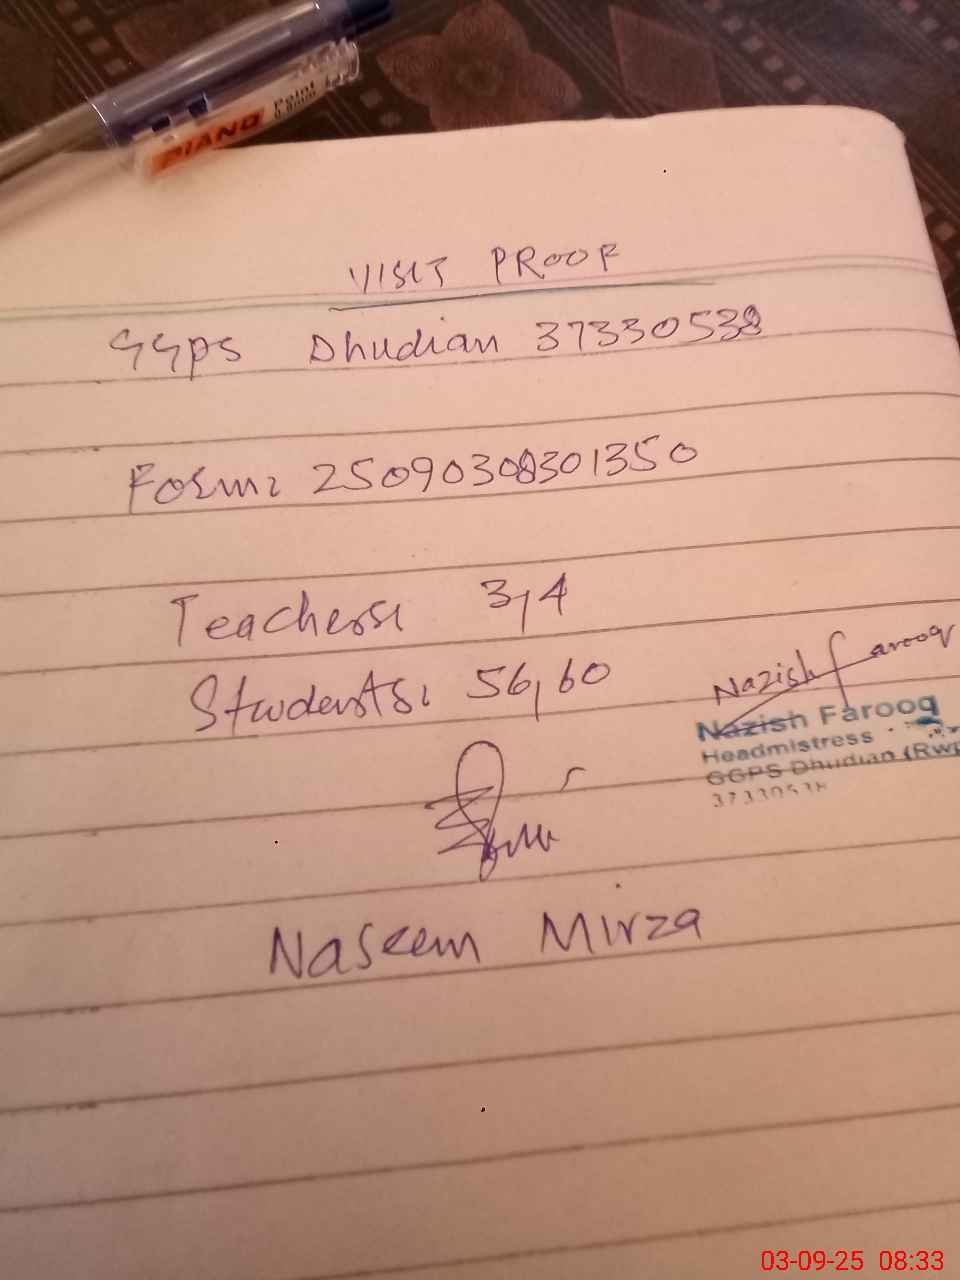 PIANO
Point
0.8mm
VISIT PROOF
GGPS Dhudian 37330538
Form: 25090308301350
Teachers: 3,4
Students: 56,60
Nazish Farooq
Nazish Farooq
Headmistress
GGPS Dhudian (Rwp
37330538
Naseem Mirza
03-09-25 08:33